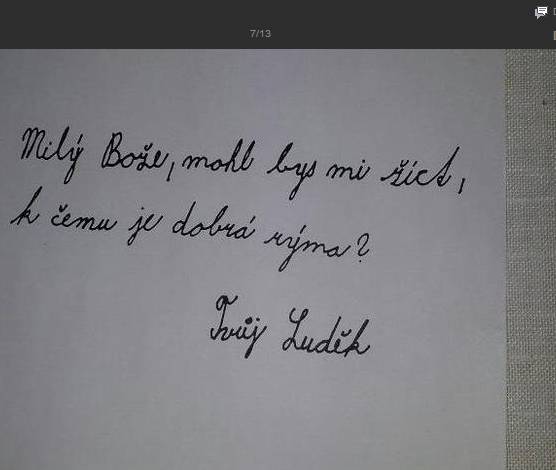 7/13
Milý Bože, mohl bys mi říct,
k čemu je dobrá rýma?
Tvůj Luděk